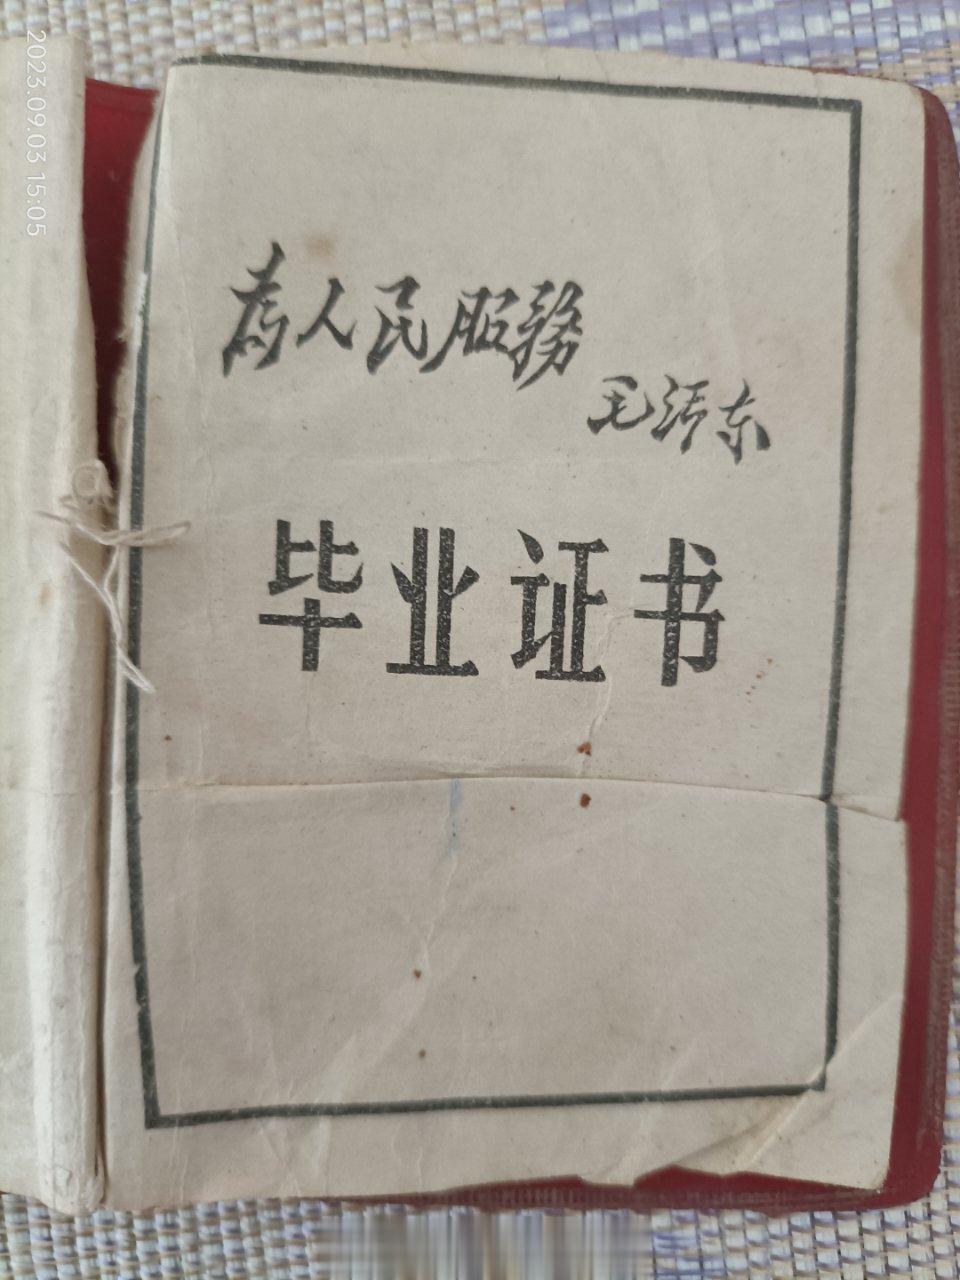 为人民服務
毛泽东
毕业证书
2023.09.03 15:05